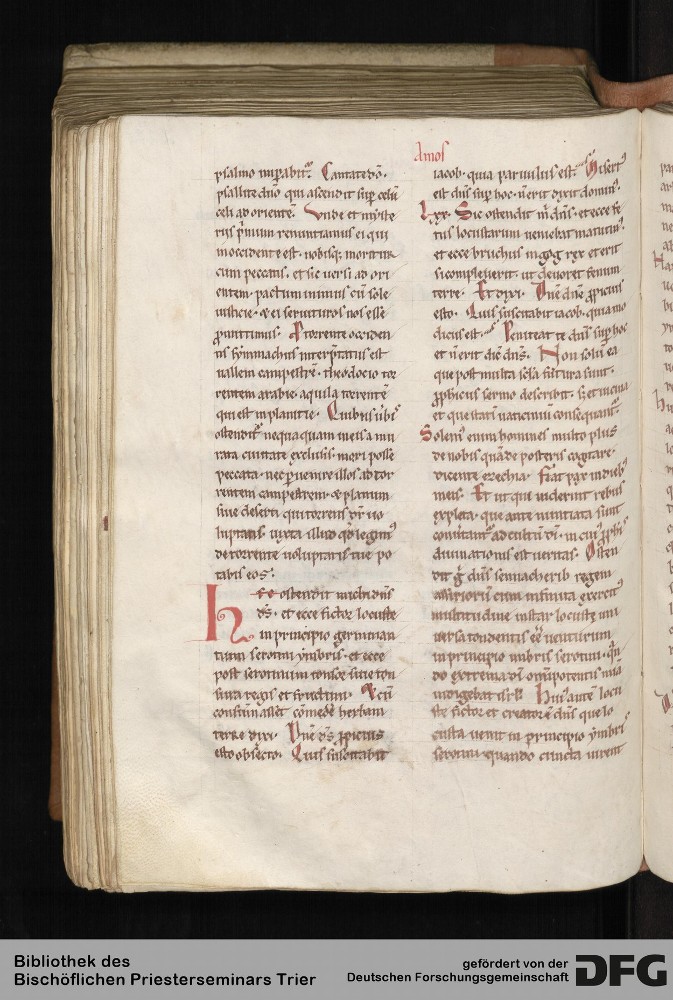 Amos
psalmo imperabit᷑. Cantate do.
psallite dno qui ascendit sup celū
celi ad orientē. Unde et in myste
riis primum renuntiamus ei qui
in occidente est. nobisq; moritur
cum peccatis. et sic uersi ad ori
entem. pactum inimus cū sole
iusticie. & ei seruituros nos esse
promittimus. P torrente occiden
tis symmachus interpretatus est
uallem campestrē. theodocio tor
rentem arabie. aquila torrentē
qui est in planitie. Quibus uerbis
ostendit nequaquam in eis a mu
rata ciuitate exclusis mori posse
peccata. nec puenire illos ad tor
rentem campestrem. & planum
siue deserti. qui torrens
luptatis. iuxta illud qd legimus
de torrente uoluptatis tue po
tabis eos.
Hec ostendit michi dns
ds. et ecce fictor locuste
in principio germinan
tium serotini ymbris. et ecce
post serotinum tonsor
regis et factum. cū
consummasset comede herbam
terre dixi. Dne ds propicius
esto obsecro. Quis suscitabit
iacob. quia paruulus est. Misertus
est dns sup hoc. n erit dixit dominus.
Lxx. Sic ostendit m dns. et ecce fe
tus locustarum ueniebat matutinus.
et ecce bruchus in gog rex et erit
si compleuerit. ut deuoret fenum
terre. Et dixi. Dne dne propicius
esto. Quis suscitabit iacob. quia mo
dicus est. Peniteat te dns sup hoc
et n erit dic dns. Non solū ea
que post multa scla futura sunt.
propheticus sermo describit. sz et uicina
et que statim uaticinium consequant.
Solent enim homines multo plus
de nobis quā de posteris cogitare.
dicente ezechia. Fiat pax in dieb
meis. Et ut qui uiderint rebus
expleta. que ante nuntiata sunt
conuertant ad cultū di. in cuius prophetis
diuinationis est ueritas. Osten
dit g dns sennacherib regem
assiriorū cum infinita exercitus
multitudine instar locuste uni
uersa tondentis eē uenturum
in principio imbris serotini. qn
do extrema di omnipotentis mia
indigebat isrl. Huius autem locu
ste fictor et creator ē dns que lo
custa uenit in principio ymbris
serotini. quando cuncta uirent
Bibliothek des
Bischöflichen Priesterseminars Trier
gefördert von der
Deutschen Forschungsgemeinschaft
DFG